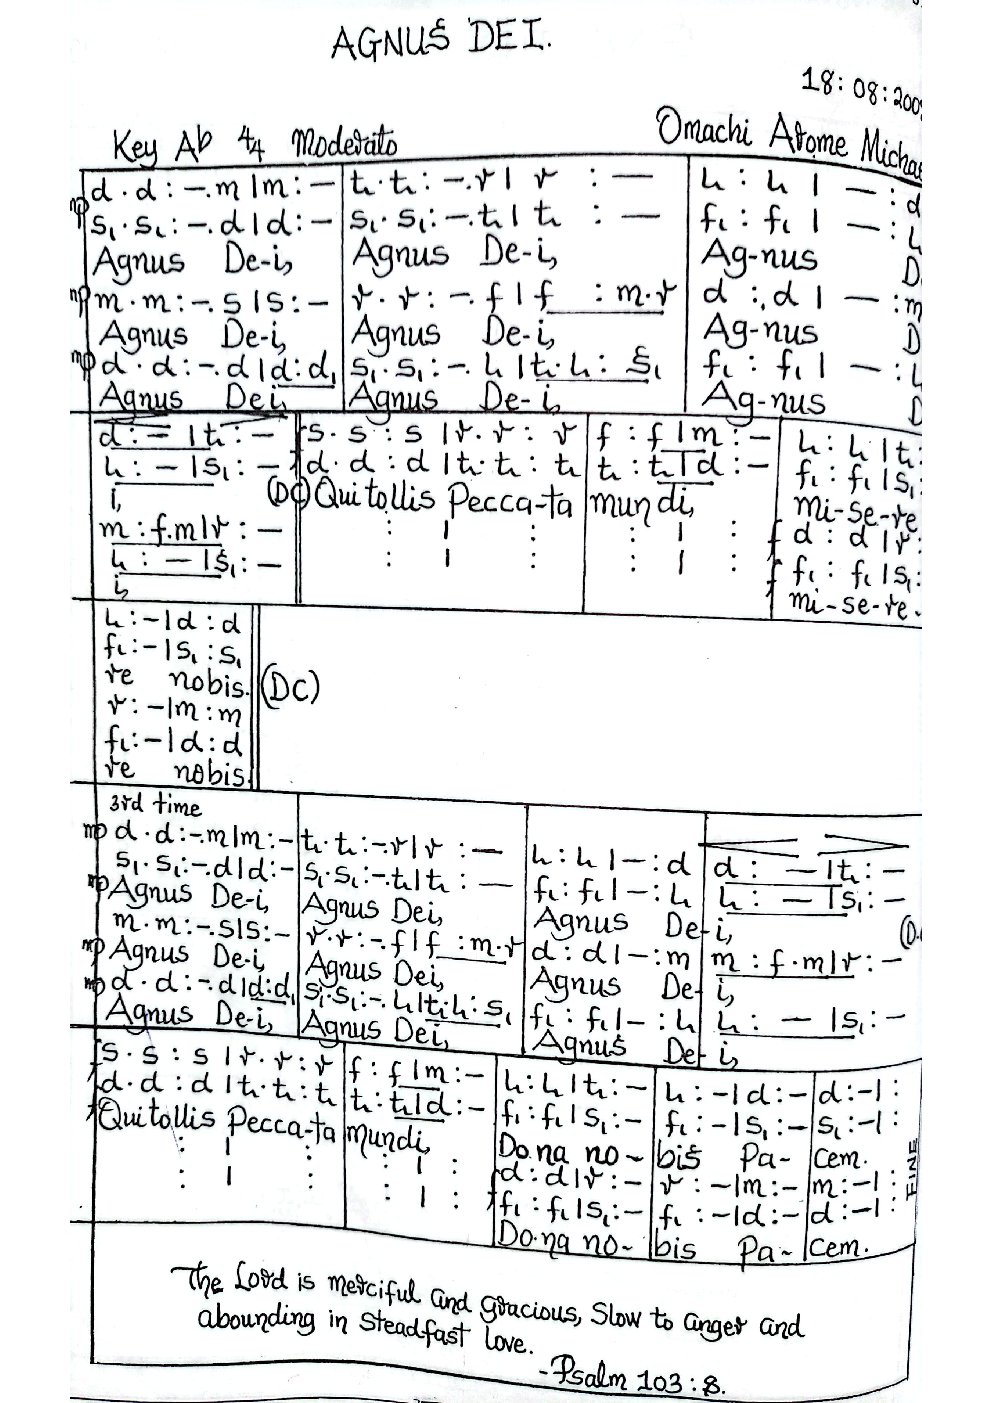 AGNUS DEI.
18:08:200
Key Ab 4/4 Moderato Omachi Atome Micha
mp d . d : – . m | m : – t₁ . t₁ : – . r | r : — l₁ : l₁ | — : d
s₁ . s₁ : – . d | d : – s₁ . s₁ : – . t₁ | t₁ : — f₁ : f₁ | — : l₁
Agnus De-i, Agnus De-i, Ag-nus D
mp m . m : – . s | s : – r . r : – . f | f : m . r d : d | — : m
Agnus De-i, Agnus De-i, Ag-nus D
mp d . d : – . d | d : d₁ s₁ . s₁ : – . l₁ | t₁ . l₁ : s₁ f₁ : f₁ | — : l₁
Agnus Dei, Agnus De-i, Ag-nus D
d : – | t₁ : – s . s : s | r . r : r f : f | m : – l₁ : l₁ | t₁ :
l₁ : – | s₁ : – f d . d : d | t₁ . t₁ : t₁ t₁ : t₁ | d : – f₁ : f₁ | s₁ :
i, (DC) Qui tollis Pecca-ta mundi, mi-se-re
m : f . m | r : – : | : : | : f d : d | r :
l₁ : – | s₁ : – : | : : | : f f₁ : f₁ | s₁ :
i, mi-se-re-
l₁ : – | d : d
f₁ : – | s₁ : s₁
re nobis. (DC)
r : – | m : m
f₁ : – | d : d
re nobis.
3rd time
mp d . d : – . m | m : – t₁ . t₁ : – . r | r : — l₁ : l₁ | – : d d : — | t₁ : –
s₁ . s₁ : – . d | d : – s₁ . s₁ : – . t₁ | t₁ : — f₁ : f₁ | – : l₁ l₁ : – | s₁ : –
mp Agnus De-i, Agnus Dei, Agnus De-i, (D.
m . m : – . s | s : – r . r : – . f | f : m . r d : d | – : m m : f . m | r : –
mp Agnus De-i, Agnus Dei, Agnus De-i,
mp d . d : – . d | d : d₁ s₁ . s₁ : – . l₁ | t₁ . l₁ : s₁ f₁ : f₁ | – : l₁ l₁ : — | s₁ : –
Agnus De-i, Agnus Dei, Agnus De-i,
f s . s : s | r . r : r f : f | m : – l₁ : l₁ | t₁ : – l₁ : – | d : – d : – | :
f d . d : d | t₁ . t₁ : t₁ t₁ : t₁ | d : – f₁ : f₁ | s₁ : – f₁ : – | s₁ : – s₁ : – | :
Qui tollis Pecca-ta mundi, Do.na no- bis Pa- cem.
: | : : | : d : d | r : – r : – | m : – m : – | :
: | : : | : f f₁ : f₁ | s₁ : – f₁ : – | d : – d : – | :
Do.na no- bis Pa- cem.
FINE
The Lord is merciful and gracious, Slow to anger and
abounding in steadfast love.
-Psalm 103:8.